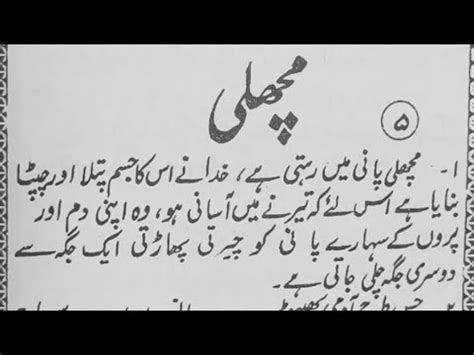 مچھلی
۵
۱۔ مچھلی پانی میں رہتی ہے، خدا نے اس کا جسم پتلا اور چپٹا
بنایا ہے اس لئے کہ تیرنے میں آسانی ہو، وہ اپنی دم اور
پروں کے سہارے پانی کو چیرتی پھاڑتی ایک جگہ سے
دوسری جگہ چلی جاتی ہے۔
۲۔ جس طرح آدمی